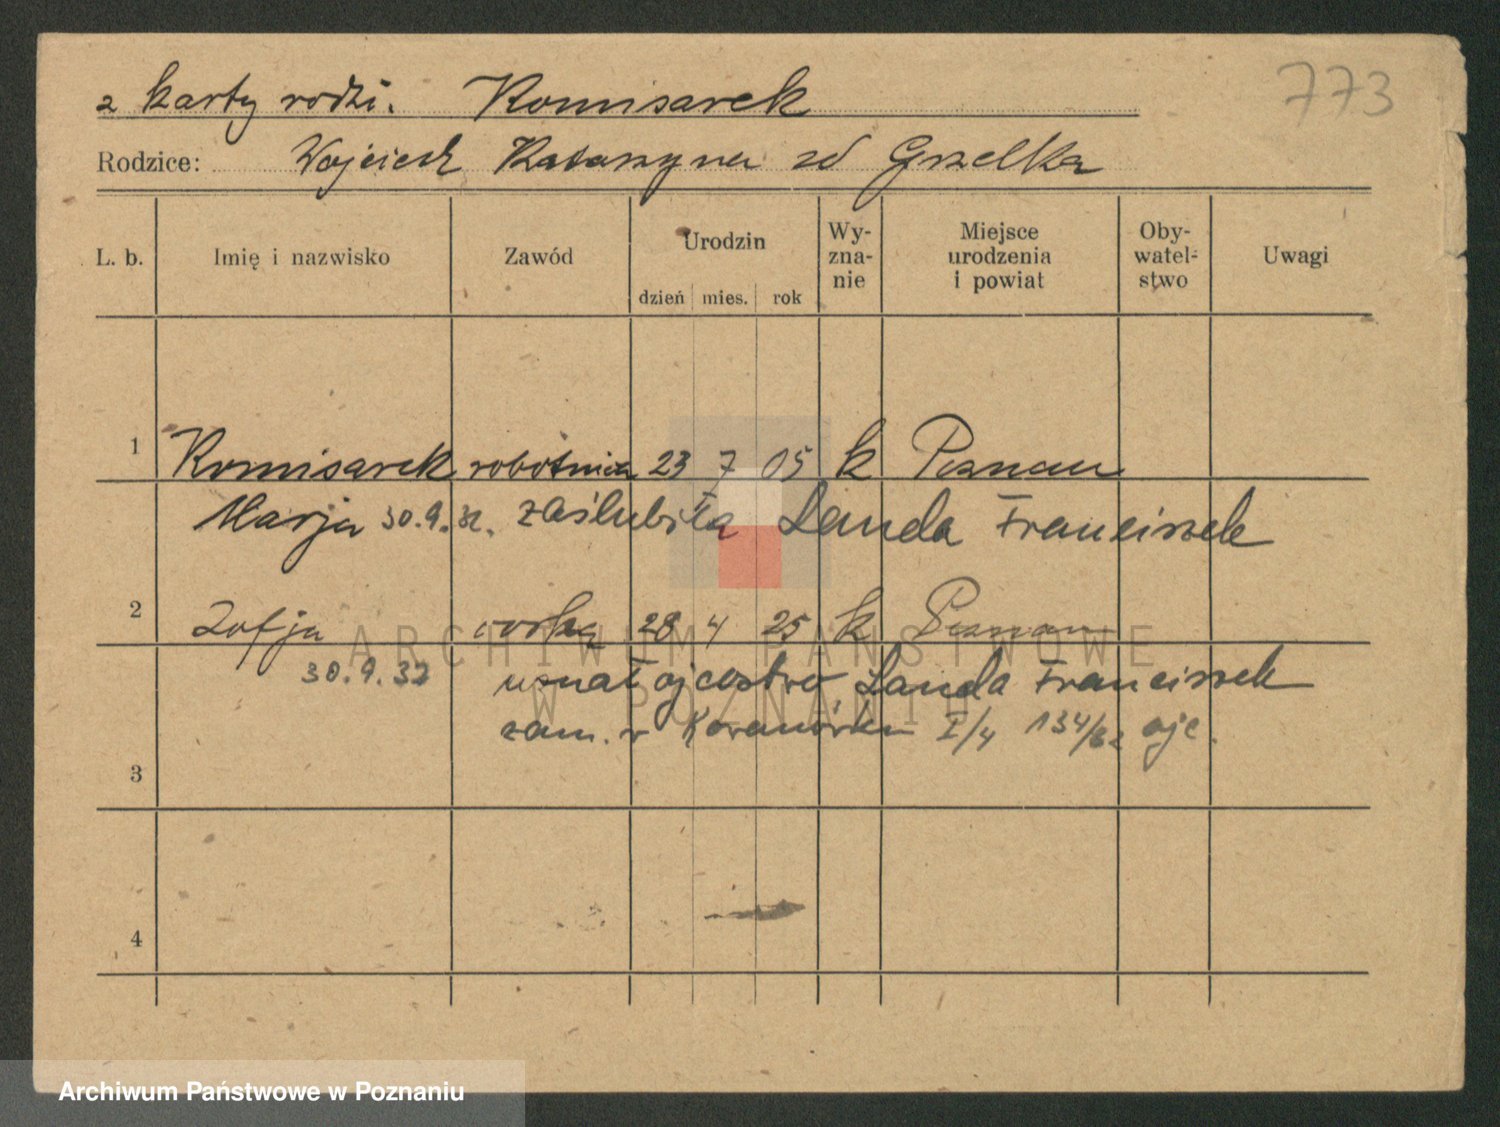 z karty rodzi. Komisarek
773
Rodzice: Wojciech Katarzyna zd Grzelka
L. b. Imię i nazwisko Zawód Urodzin dzień mies. rok Wy-zna-nie Miejsce urodzenia i powiat Oby-watel-stwo Uwagi
1 Komisarek robotnica 23 7 05 k Poznan
Marja 30.9.32. zaślubiła Landa Franciszek
2 Zofja córka 28 4 25 k Poznan
30.9.32 uznał ojcostwo Landa Franciszek
zam. w Koranórku I/4 134/32 ojc.
3
4
ARCHIWUM PAŃSTWOWE
W POZNANIU
Archiwum Państwowe w Poznaniu